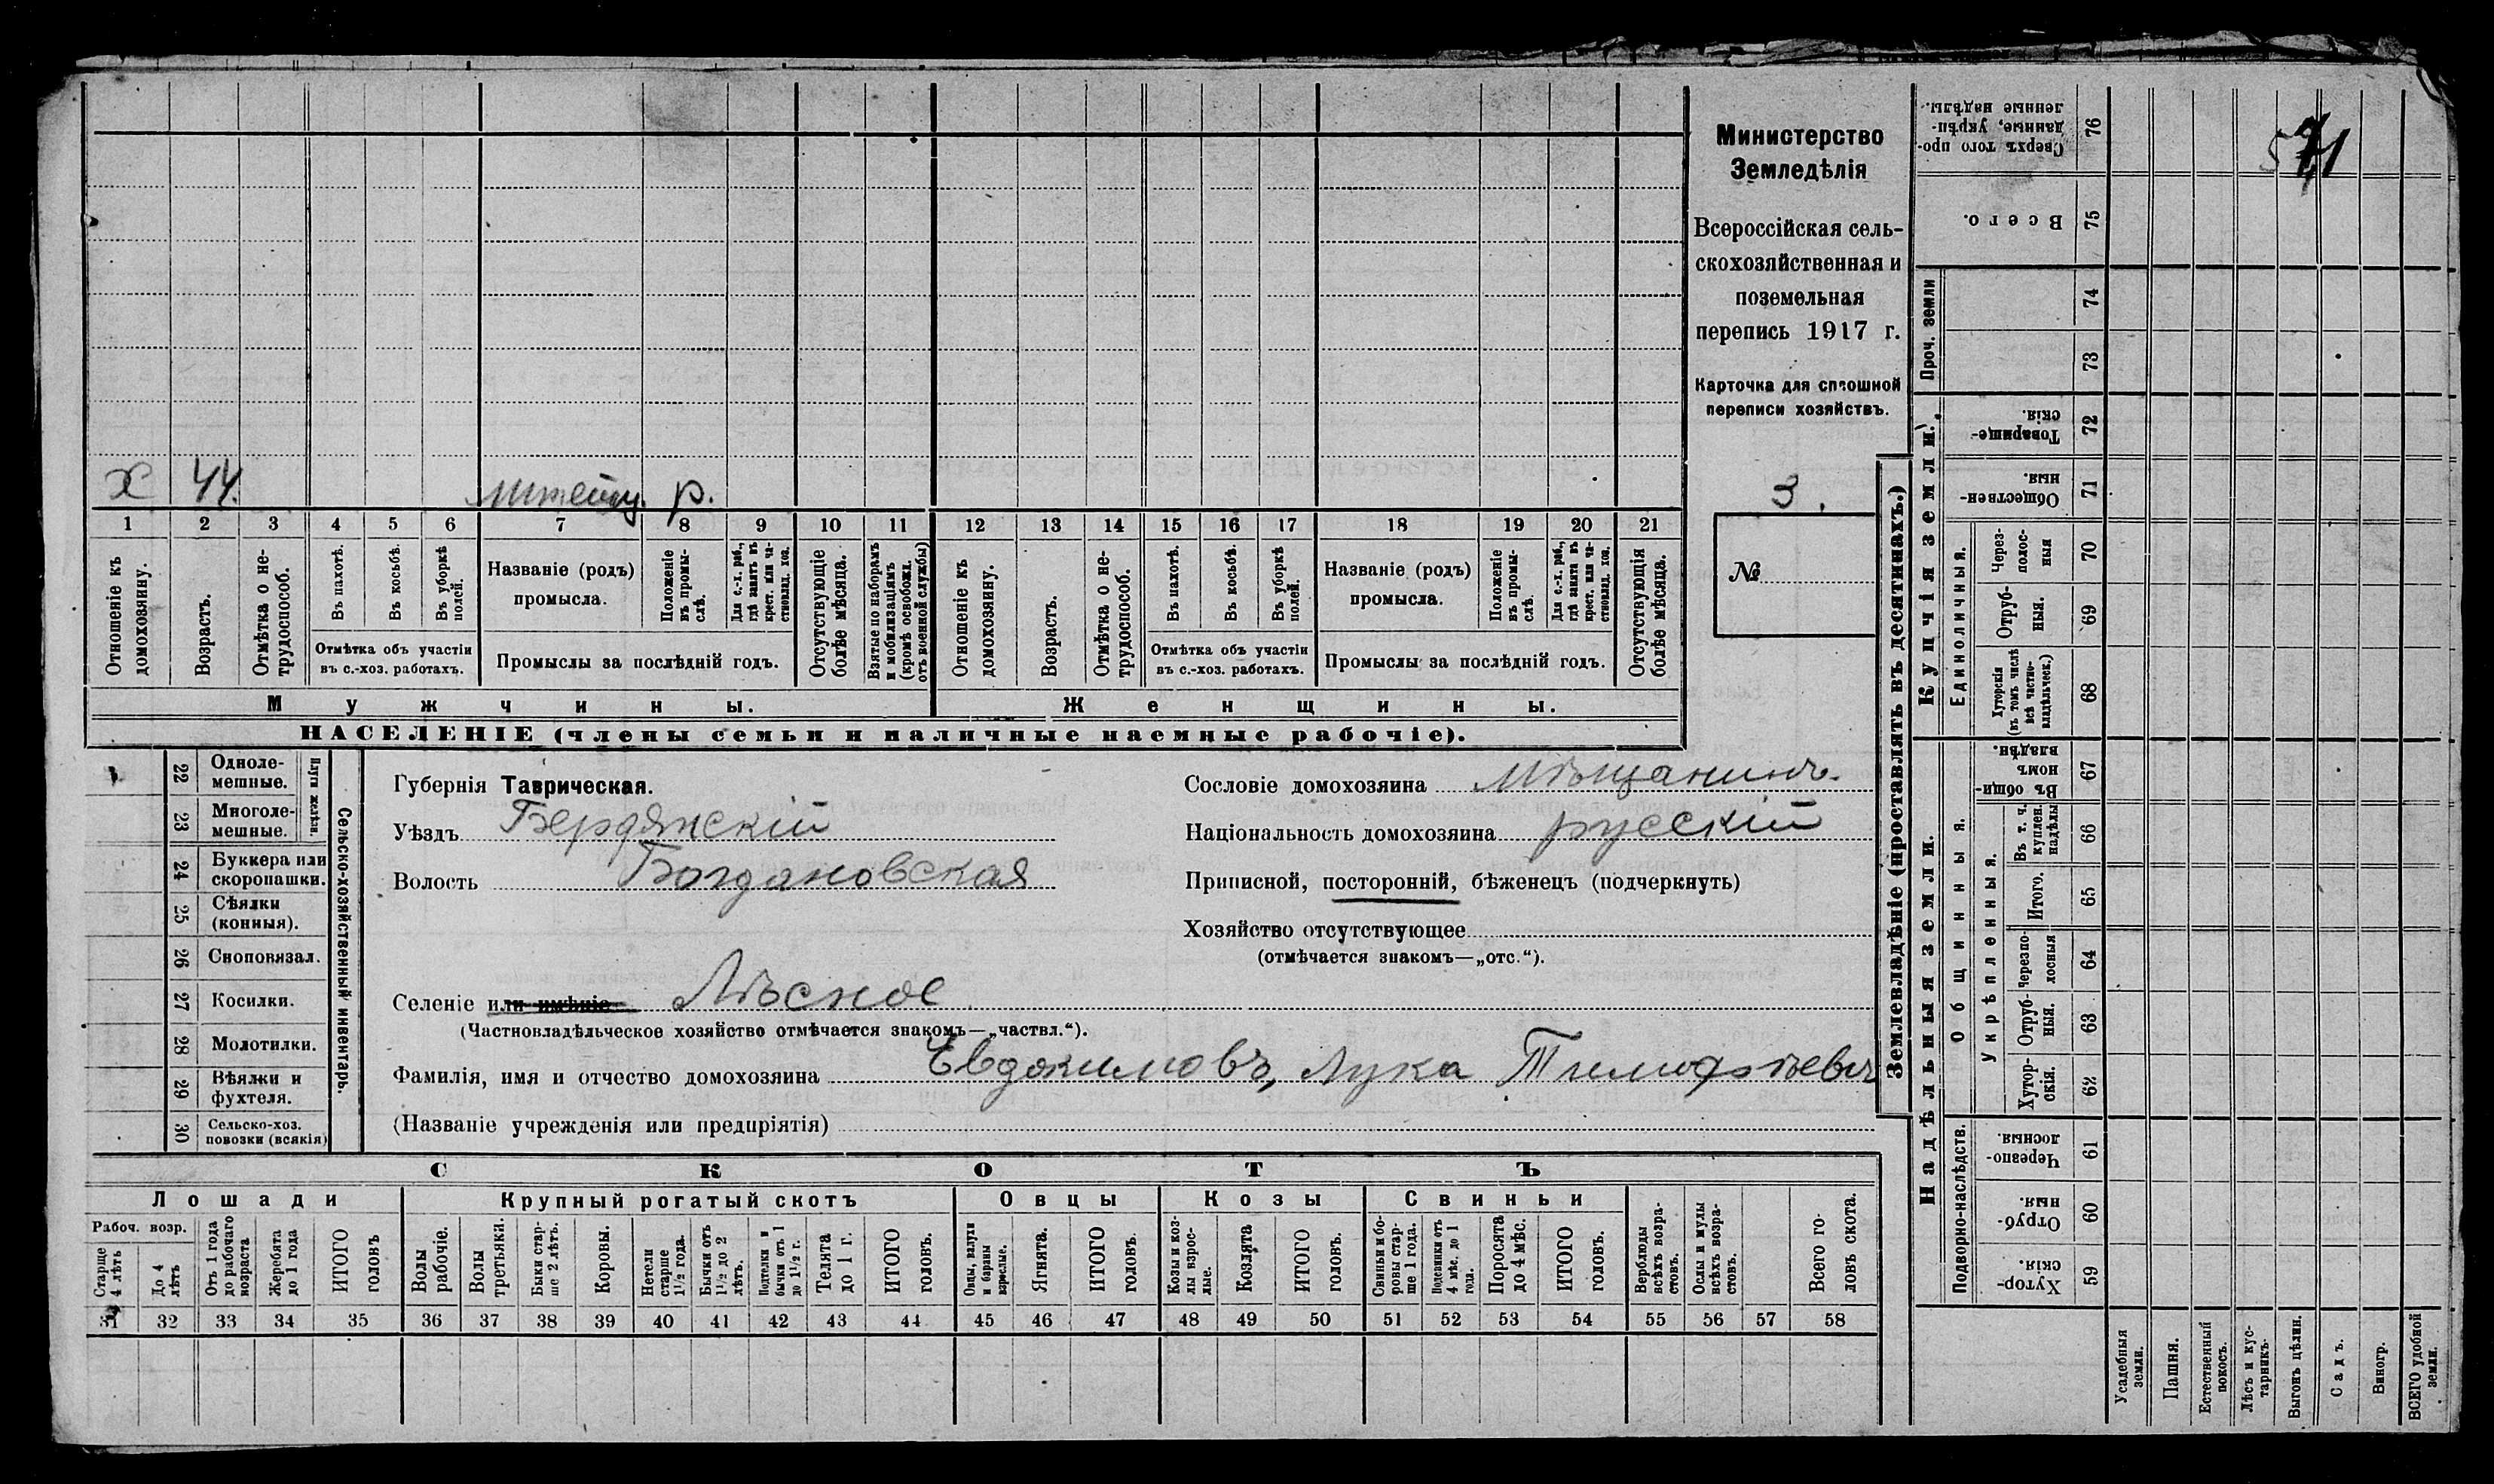 х 44. р.
1 2 3 4 5 6 7 8 9 10 11 12 13 14 15 16 17 18 19 20 21
Отношеніе къ домохозяину.
Возрастъ.
Отмѣтка о не-
трудоспособ.
Въ пахотѣ.
Въ косьбѣ.
Въ уборкѣ
полей.
Отмѣтка объ участіи
въ с.-хоз. работахъ.
Названіе (родъ)
промысла.
Положеніе
въ промы-
слѣ.
Для с.-х. раб.,
гдѣ занятъ въ
крест. или ча-
стновлад. хоз.
Промыслы за послѣдній годъ.
Отсутствующіе
болѣе мѣсяца.
Взятые по наборамъ
и мобилизаціямъ
(кромѣ освобожд.
отъ военной службы)
Отношеніе къ
домохозяину.
Возрастъ.
Отмѣтка о не-
трудоспособ.
Въ пахотѣ.
Въ косьбѣ.
Въ уборкѣ
полей.
Отмѣтка объ участіи
въ с.-хоз. работахъ.
Названіе (родъ)
промысла.
Положеніе
въ промы-
слѣ.
Для с.-х. раб.,
гдѣ занята въ
крест. или ча-
стновлад. хоз.
Промыслы за послѣдній годъ.
Отсутствующія
болѣе мѣсяца.
Мужчины.
Женщины.
НАСЕЛЕНІЕ (члены семьи и наличные наемные рабочіе).
Министерство
Земледѣлія
Всероссійская сель-
скохозяйственная и
поземельная
перепись 1917 г.
Карточка для сплошной
переписи хозяйствъ.
3.
№
22 Одноле-
мешные.
23 Многоле-
мешные.
Плуги желѣзн.
24 Буккера или
скоропашки.
25 Сѣялки
(конныя).
26 Сноповязал.
27 Косилки.
28 Молотилки.
29 Вѣялки и
фухтеля.
30 Сельско-хоз.
повозки (всякія)
Сельско-хозяйственный инвентарь.
Губернія Таврическая.
Уѣздъ Бердянскій
Волость Богдановская
Селеніе или имѣніе Лѣсное.
(Частновладѣльческое хозяйство отмѣчается знакомъ—„частвл.“).
Фамилія, имя и отчество домохозяина Евдокимовъ, Лука Тимофѣевич
(Названіе учрежденія или предпріятія)
Сословіе домохозяина Мѣщанинъ.
Національность домохозяина русскій
Приписной, посторонній, бѣженецъ (подчеркнуть)
Хозяйство отсутствующее
(отмѣчается знакомъ—„отс.“).
СКОТЪ
Лошади
Крупный рогатый скотъ
Овцы
Козы
Свиньи
Рабоч. возр.
Старше
4 лѣтъ
До 4
лѣтъ
Отъ 1 года
до рабочаго
возраста
Жеребята
до 1 года
ИТОГО
головъ
Волы
рабочіе.
Волы
третьяки.
Быки стар-
ше 2 лѣтъ.
Коровы.
Нетели
старше
1½ года.
Бычки отъ
1½ до 2
лѣтъ.
Подтелки и
бычки отъ 1
до 1½ г.
Телята
до 1 г.
ИТОГО
головъ.
Овцы, валухи
и бараны
взрослые.
Ягнята.
ИТОГО
головъ.
Козы и коз-
лы взрос-
лые.
Козлята
ИТОГО
головъ.
Свиньи и бо-
ровы стар-
ше 1 года.
Подсвинки отъ
4 мѣс. до 1
года.
Поросята
до 4 мѣс.
ИТОГО
головъ.
Верблюды
всѣхъ возра-
стовъ.
Ослы и мулы
всѣхъ возра-
стовъ.
Всего го-
ловъ скота.
31 32 33 34 35 36 37 38 39 40 41 42 43 44 45 46 47 48 49 50 51 52 53 54 55 56 57 58
Землевладѣніе (проставлять въ десятинахъ.)
Купчія земли.
Надѣльныя земли.
76 Сверхъ того про-
данные, укрѣп-
ленные надѣлы.
75 Всего.
Проч. земли
74
73
72 Товарище-
скія.
71 Обществен-
ныя.
Единоличныя.
70 Через-
полос-
ныя
69 Отруб-
ныя.
68 Хуторскія
(въ томъ числѣ
всѣ частно-
владѣльческ.)
67 Въ общин-
номъ
владѣн.
Общинныя.
Укрѣпленныя.
66 Въ т. ч.
куплен.
надѣлы
65 Итого.
64 Черезпо-
лосныя
63 Отруб-
ныя.
62 Хутор-
скія.
Подворно-наслѣдств.
61 Черезпо-
лосныя.
60 Отруб-
ныя.
59 Хутор-
скія.
Усадебныя
земли.
Пашня.
Естественный
покосъ.
Лѣсъ и кус-
тарникъ.
Выгонъ цѣлин.
Садъ.
Виногр.
ВСЕГО удобной
земли.